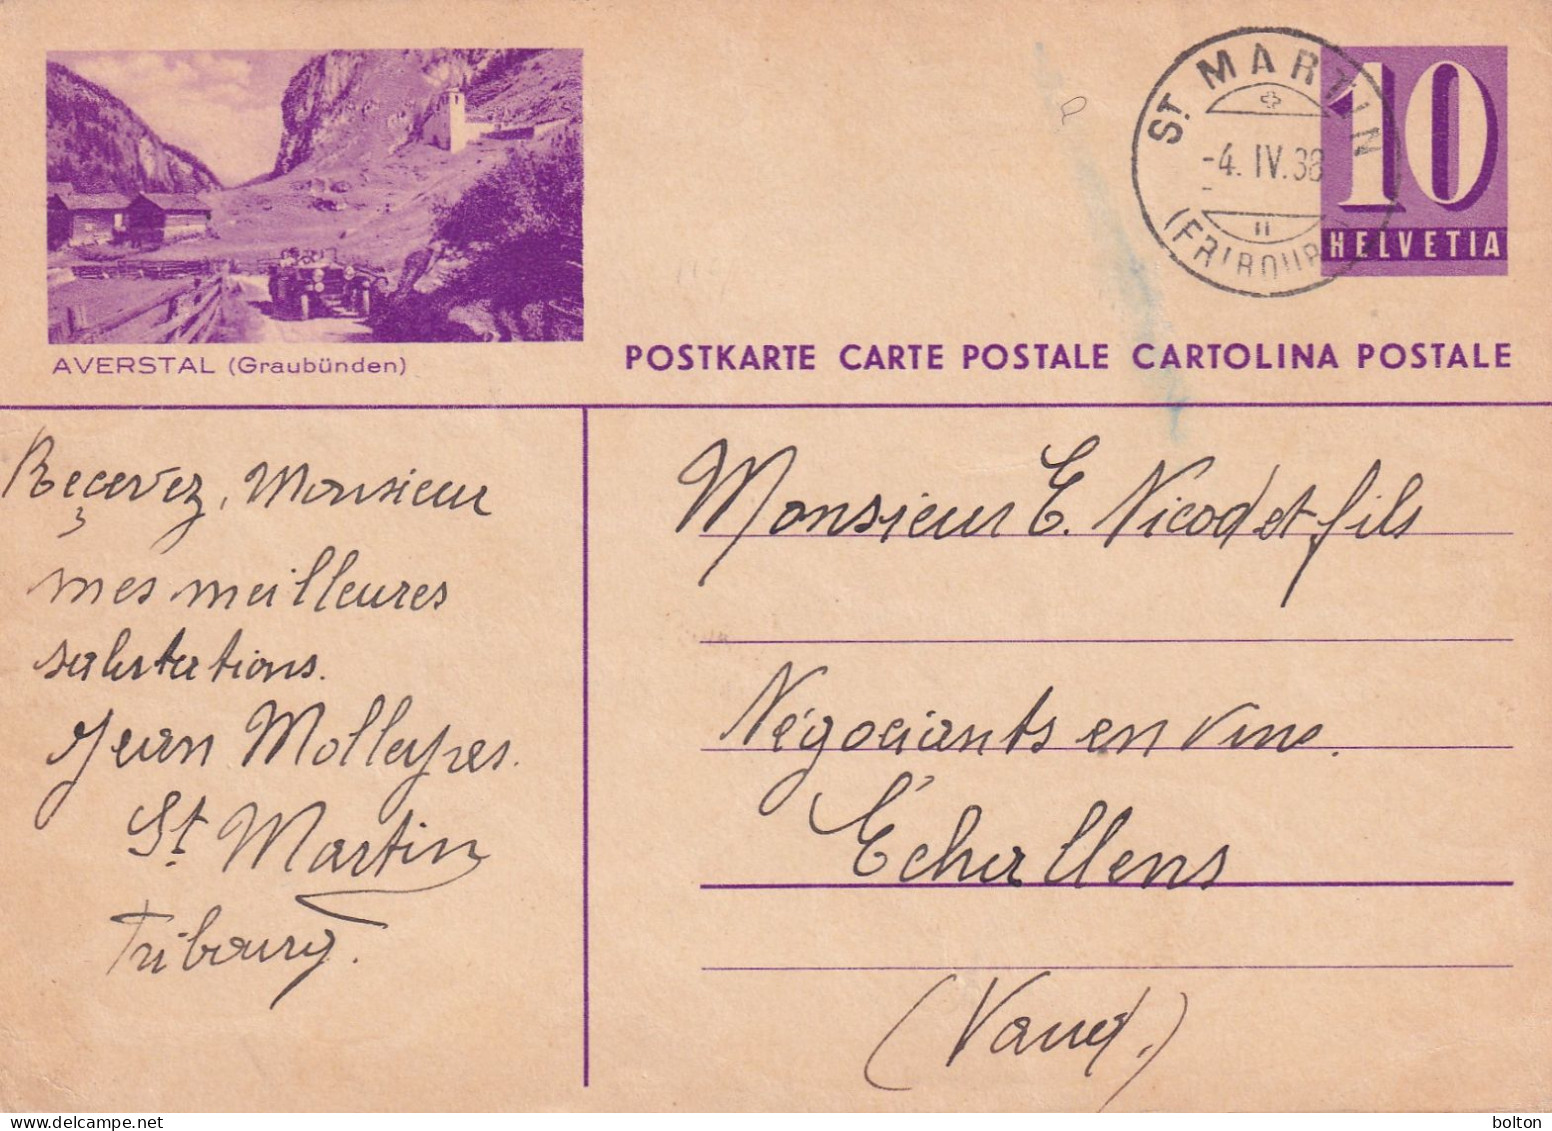 AVERSTAL (Graubünden)
St MARTIN
-4. IV. 38
(FRIBOURG)
10
HELVETIA
POSTKARTE CARTE POSTALE CARTOLINA POSTALE
Reçevez, Monsieur
mes meilleures
salutations.
Jean Molleyres.
St. Martin
Fribourg.
Monsieur E. Nicod et fils
Négociants en vins.
Échallens
(Vaud.)
delcampe.net
bolton